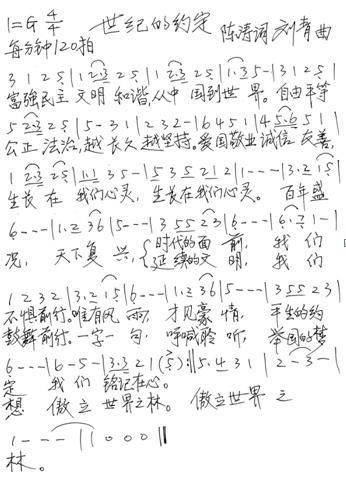 1=G 4/4 世纪的约定 陈涛词 刘青曲
每分钟120拍
3 1 2 5 | 1 2·3 2 5 | 1 2·3 2 5 | 1·3 5 - | 3 1 2 5 |
富强民主 文明 和谐,从中 国到世 界。自由平等
5 2·3 2 5 | 5 - 3 1 | 2 3 2 - | 6 4 5 1 | 4 5·6 5 |
公正 法治,越 长久 越坚持。爱国敬业诚信 友善,
1 2·3 2 5 | 1·1 3 5 - | 5 3 5 2 1 2 | 1 - - - | 3·2 1 5 |
生长 在 我们心灵, 生长在我们心灵。 百年盛
6 - - - | 1·2 3 6 | 5 - - - | 3 5 5 2 3 | 6 - - - | 6·1 2 1 - |
况, 天下复 兴, 时代的面 前, 我 们
延续的文 明, 我 们
1 2 3 2 | 3·2 1 5 | 6 - - - | 1·2 3 6 | 5 - - - | 3 5 5 2 3 |
不惧前行。唯有风 雨, 才见豪 情, 平生的约
鼓舞前行。一字一 句, 呼喊聆 听, 举国的梦
6 - - - | 6 - 5 - | 3·3 2 1 (5) :|| 5·4 3 1 | 2 - 3 - |
定 我 们 铭记在心。
想 傲 立 世界之林。 傲立世界 之
1 - - - | 1 0 0 0 ||
林。